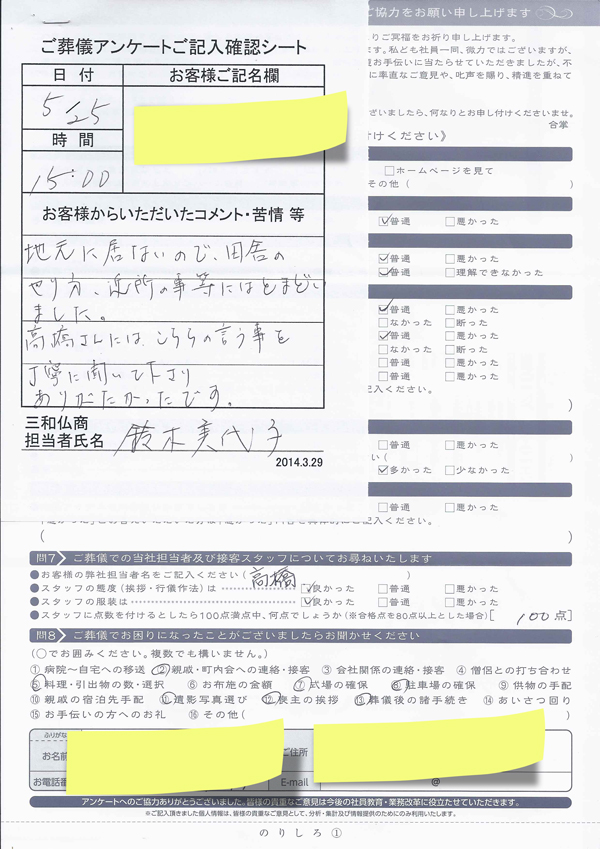 ご葬儀アンケートご記入確認シート
日 付
お客様ご記名欄
5/25
時 間
15:00
お客様からいただいたコメント・苦情 等
地元に居ないので、田舎の
やり方、近所の事等にはとまどい
ました。
高橋さんには、こちらの言う事を
丁寧に聞いて下さり
ありがたかったです。
三和仏商
担当者氏名 鈴木美代子
2014.3.29
ご協力をお願い申し上げます
ご冥福をお祈り申し上げます。
す。私ども社員一同、微力ではございますが、
お手伝いに当たらせていただきましたが、不
に率直なご意見や、叱声を賜り、精進を重ねて
ざいましたら、何なりとお申し付けくださいませ。
合掌
付けください》
□ホームページを見て
その他（　　　）
☑普通 □悪かった
☑普通 □悪かった
☑普通 □理解できなかった
☑普通 □悪かった
□なかった □断った
☑普通 □悪かった
□なかった □断った
□普通 □悪かった
□普通 □悪かった
記入ください。
□普通 □悪かった
☑多かった □少なかった
□普通 □悪かった
問7 ご葬儀での当社担当者及び接客スタッフについてお尋ねいたします
●お客様の弊社担当者名をご記入ください（ 高橋 ）
●スタッフの態度（挨拶・行儀作法）は ☑良かった □普通 □悪かった
●スタッフの服装は ☑良かった □普通 □悪かった
●スタッフに点数を付けるとしたら100点満点中、何点でしょうか（※合格点を80点以上とした場合）［ 100 点］
問8 ご葬儀でお困りになったことがございましたらお聞かせください
（○でお囲みください。複数でも構いません。）
①病院～自宅への移送 ②親戚・町内会への連絡・接客 ③会社関係の連絡・接客 ④僧侶との打ち合わせ
⑤料理・引出物の数・選択 ⑥お布施の金額 ⑦式場の確保 ⑧駐車場の確保 ⑨供物の手配
⑩親戚の宿泊先手配 ⑪遺影写真選び ⑫喪主の挨拶 ⑬葬儀後の諸手続き ⑭あいさつ回り
⑮お手伝いの方へのお礼 ⑯その他（　　　）
ふりがな
お名前
ご住所
お電話番
E-mail @
アンケートへのご協力ありがとうございました。皆様の貴重なご意見は今後の社員教育・業務改革に役立たせていただきます。
※ご記入頂きました個人情報は、皆様の貴重なご意見として、分析・集計及び情報提供のためにのみ利用いたします。
の り し ろ ①